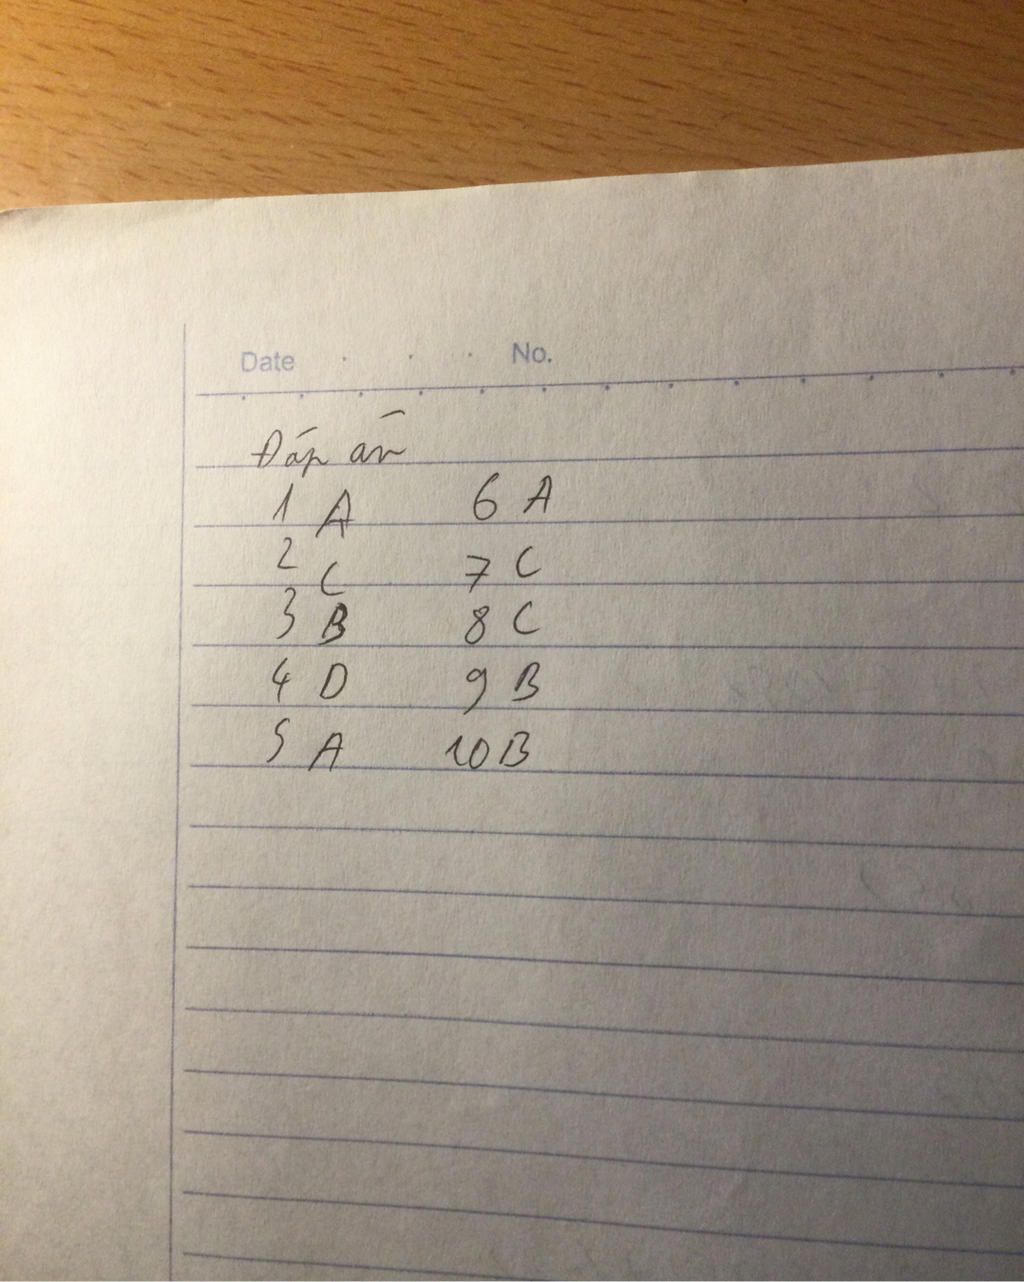 Date . . . No.
Đáp án
1 A 6 A
2 C 7 C
3 B 8 C
4 D 9 B
5 A 10 B